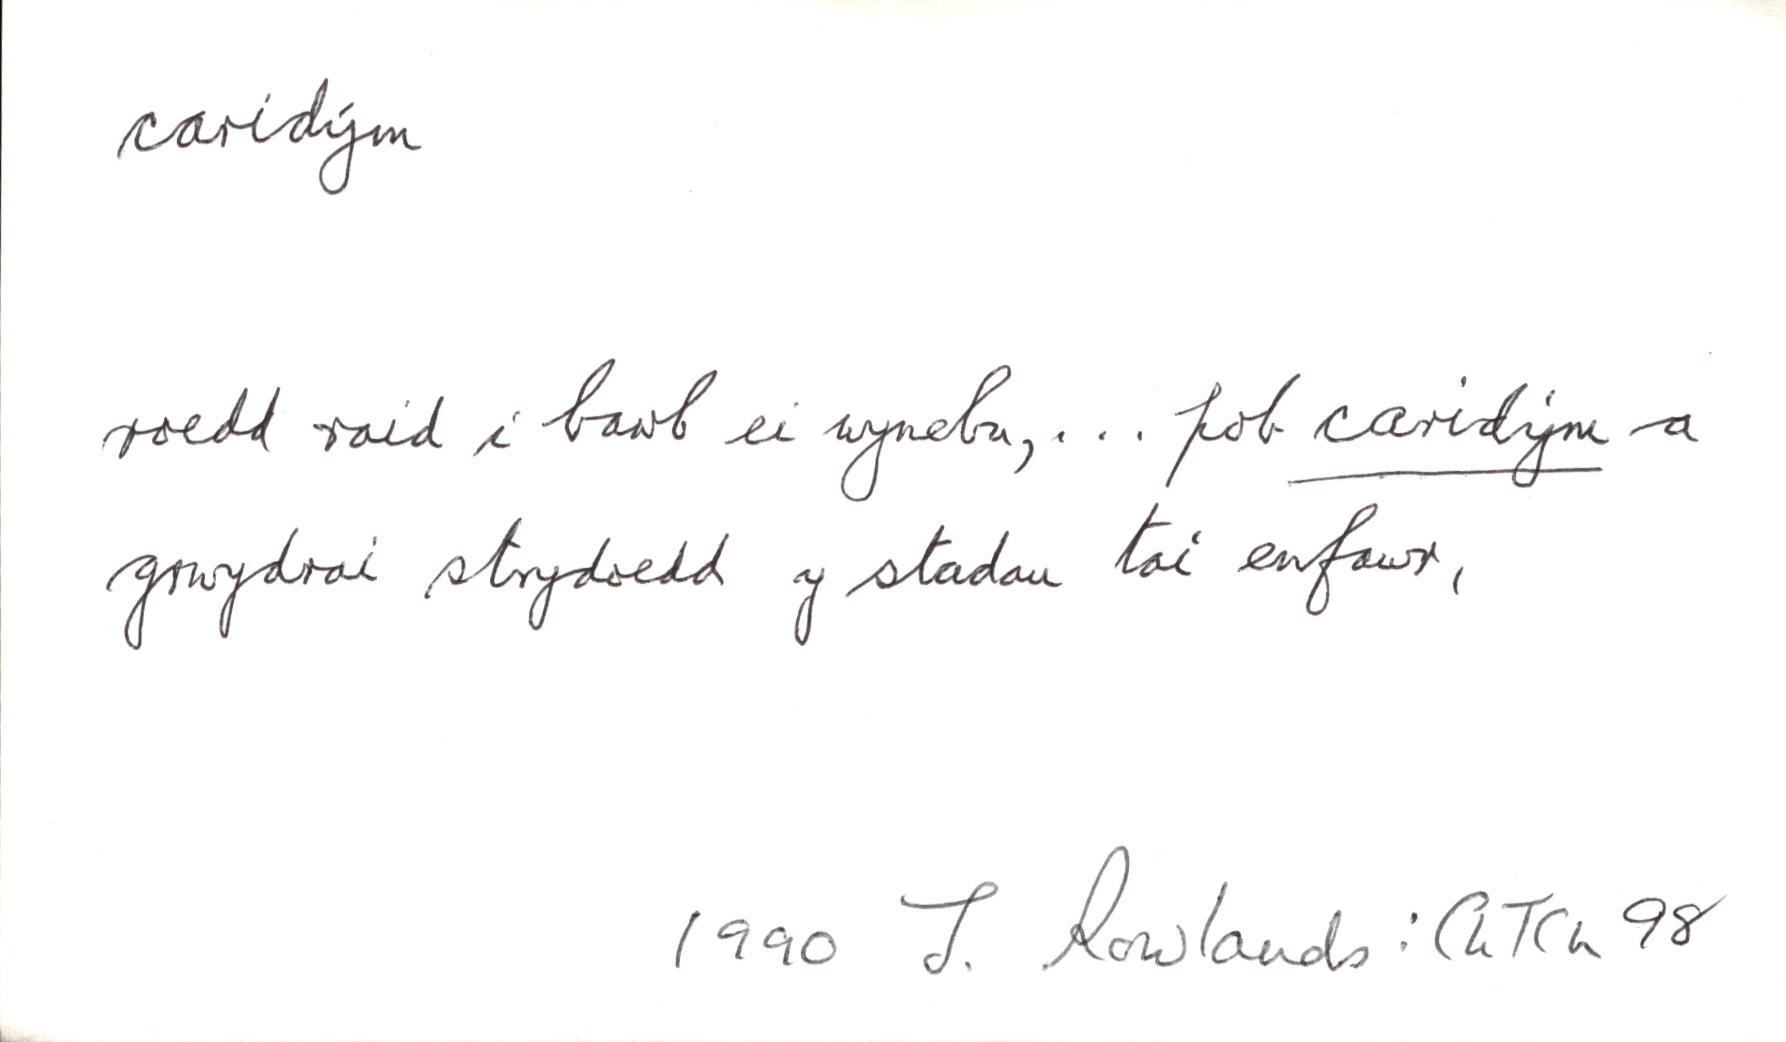 caridým
roedd raid i bawb ei wynebu, ... pob caridým a
grwydrai strydoedd y stadau tai enfawr,
1990 J. Rowlands : ChTCh 98